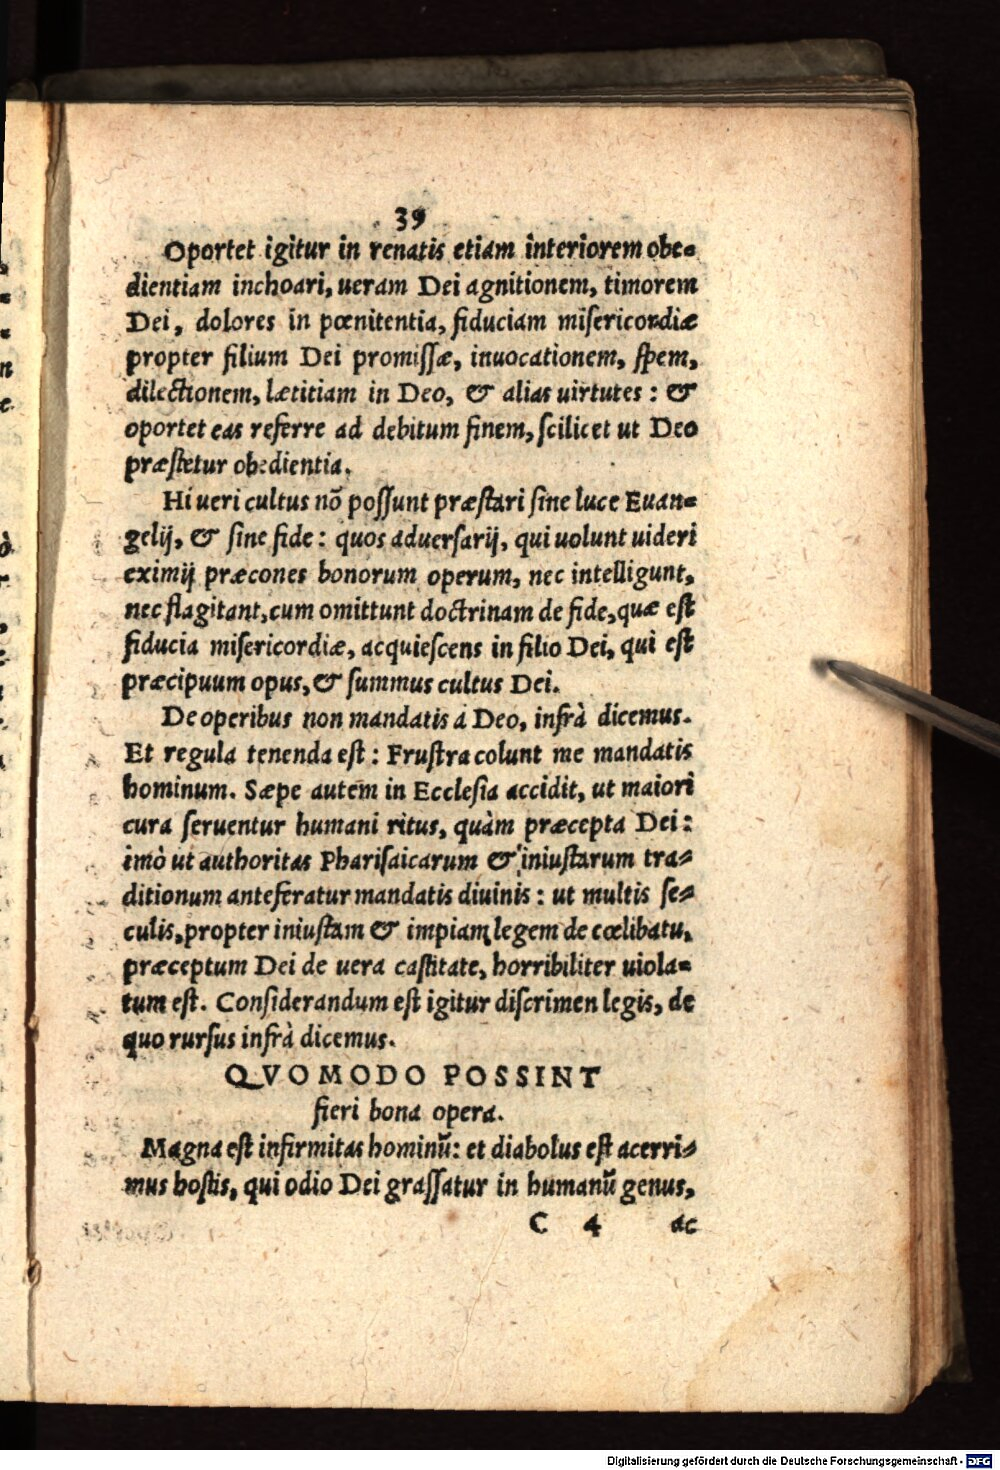 39
Oportet igitur in renatis etiam interiorem obe-
dientiam inchoari, ueram Dei agnitionem, timorem
Dei, dolores in pœnitentia, fiduciam misericordiæ
propter filium Dei promissæ, inuocationem, spem,
dilectionem, lætitiam in Deo, & alias uirtutes: &
oportet eas referre ad debitum finem, scilicet ut Deo
præstetur obedientia.
Hi ueri cultus nõ possunt præstari sine luce Euan-
gelij, & sine fide: quos aduersarij, qui uolunt uideri
eximij præcones bonorum operum, nec intelligunt,
nec flagitant, cum omittunt doctrinam de fide, quæ est
fiducia misericordiæ, acquiescens in filio Dei, qui est
præcipuum opus, & summus cultus Dei.
De operibus non mandatis á Deo, infrà dicemus.
Et regula tenenda est: Frustra colunt me mandatis
hominum. Sæpe autem in Ecclesia accidit, ut maiori
cura seruentur humani ritus, quàm præcepta Dei:
imò ut authoritas Pharisaicarum & iniustarum tra-
ditionum anteferatur mandatis diuinis: ut multis se-
culis, propter iniustam & impiam legem de cœlibatu,
præceptum Dei de uera castitate, horribiliter uiola-
tum est. Considerandum est igitur discrimen legis, de
quo rursus infrà dicemus.
QVOMODO POSSINT
fieri bona opera.
Magna est infirmitas hominũ: et diabolus est acerri-
mus hostis, qui odio Dei grassatur in humanũ genus,
C 4 ac
Digitalisierung gefördert durch die Deutsche Forschungsgemeinschaft - DFG